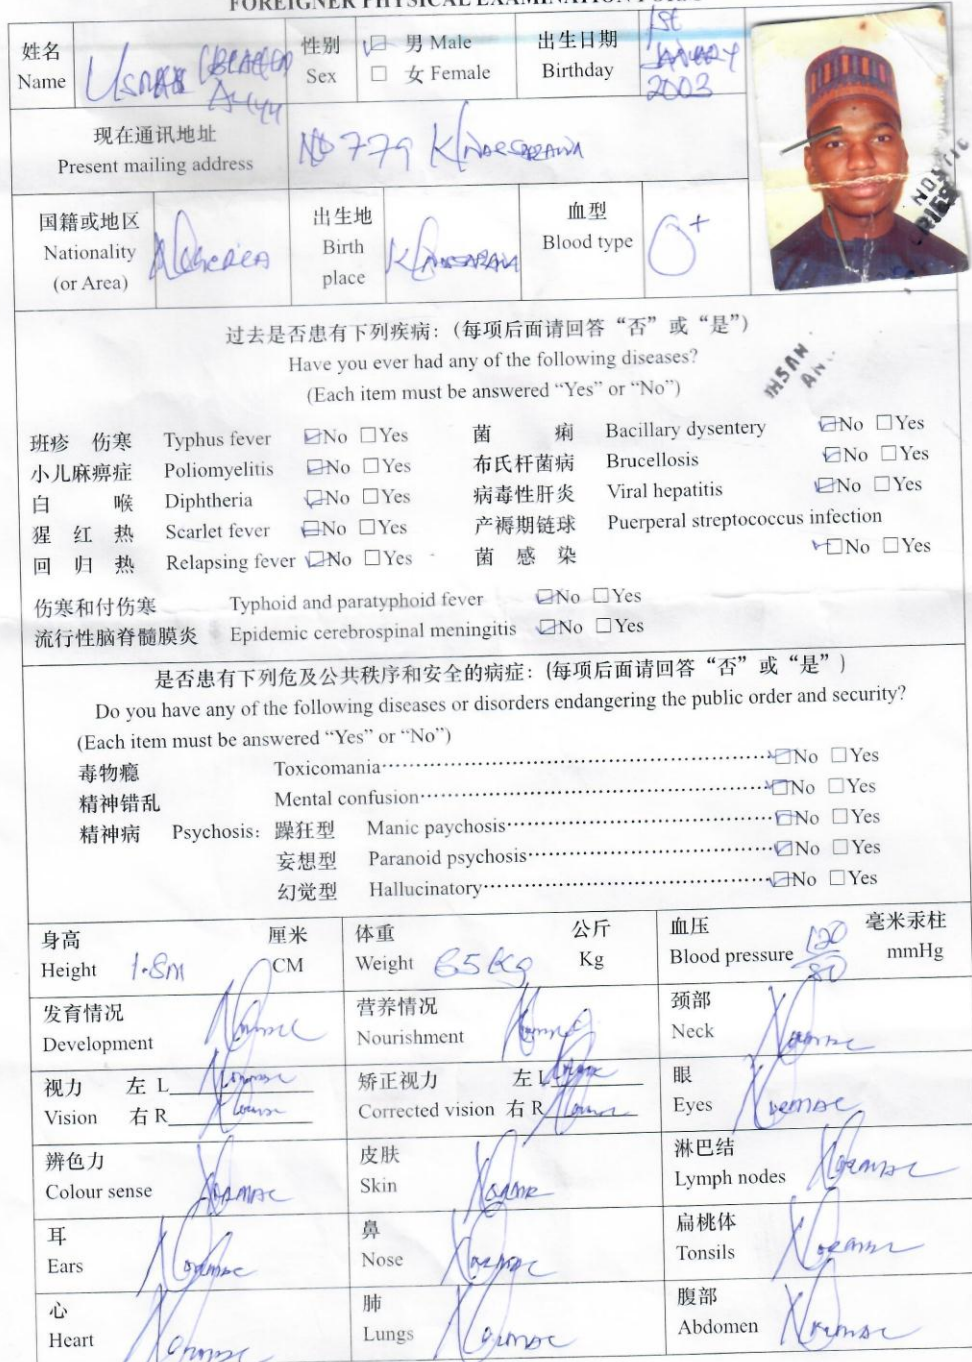 FOREIGNER PHYSICAL EXAMINATION
姓名
Name
性别
Sex
男 Male
女 Female
出生日期
Birthday
1st
JANUARY
2003
现在通讯地址
Present mailing address
NO 779 K/NASSARAWA
国籍或地区
Nationality
(or Area)
NIGERIA
出生地
Birth
place
K/NASSARAWA
血型
Blood type
O+
过去是否患有下列疾病：（每项后面请回答“否”或“是”）
Have you ever had any of the following diseases?
(Each item must be answered “Yes” or “No”)
班疹 伤寒 Typhus fever No Yes 菌 痢 Bacillary dysentery No Yes
小儿麻痹症 Poliomyelitis No Yes 布氏杆菌病 Brucellosis No Yes
白 喉 Diphtheria No Yes 病毒性肝炎 Viral hepatitis No Yes
猩 红 热 Scarlet fever No Yes 产褥期链球 Puerperal streptococcus infection
回 归 热 Relapsing fever No Yes 菌 感 染 No Yes
伤寒和付伤寒 Typhoid and paratyphoid fever No Yes
流行性脑脊髓膜炎 Epidemic cerebrospinal meningitis No Yes
是否患有下列危及公共秩序和安全的病症：（每项后面请回答“否”或“是”）
Do you have any of the following diseases or disorders endangering the public order and security?
(Each item must be answered “Yes” or “No”)
毒物瘾 Toxicomania No Yes
精神错乱 Mental confusion No Yes
精神病 Psychosis: 躁狂型 Manic paychosis No Yes
妄想型 Paranoid psychosis No Yes
幻觉型 Hallucinatory No Yes
身高 厘米
Height 1.8m CM
体重 公斤
Weight 65Kg Kg
血压 毫米汞柱
Blood pressure 120/80 mmHg
发育情况
Development Normal
营养情况
Nourishment Normal
颈部
Neck Normal
视力 左 L Normal
Vision 右 R Normal
矫正视力 左 L Normal
Corrected vision 右 R Normal
眼
Eyes Normal
辨色力
Colour sense Normal
皮肤
Skin Normal
淋巴结
Lymph nodes Normal
耳
Ears Normal
鼻
Nose Normal
扁桃体
Tonsils Normal
心
Heart Normal
肺
Lungs Normal
腹部
Abdomen Normal